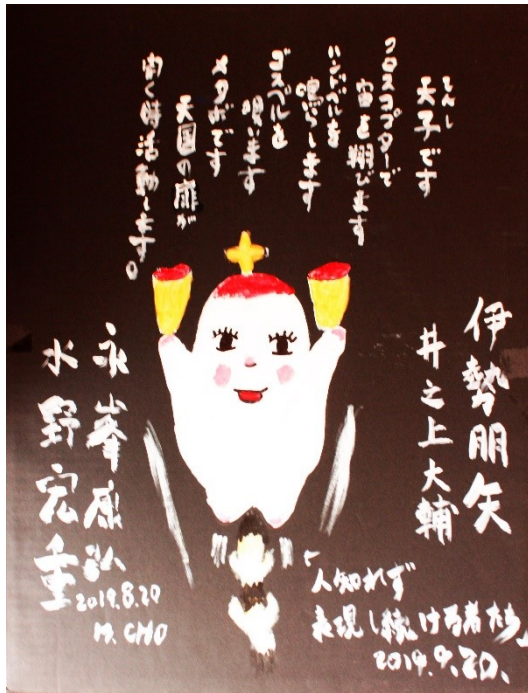 てんし
天子です
クロスコプターで
宙を翔びます
ハンドベルを
鳴らします
ゴスペルを
唄います
メタボです
天国の扉が
開く時活動します。
伊勢朋矢
井之上大輔
永峯康弘
水野宏重
2019.8.20
M.CHO
「人知れず
表現し続ける者たち」
2019.9.20.